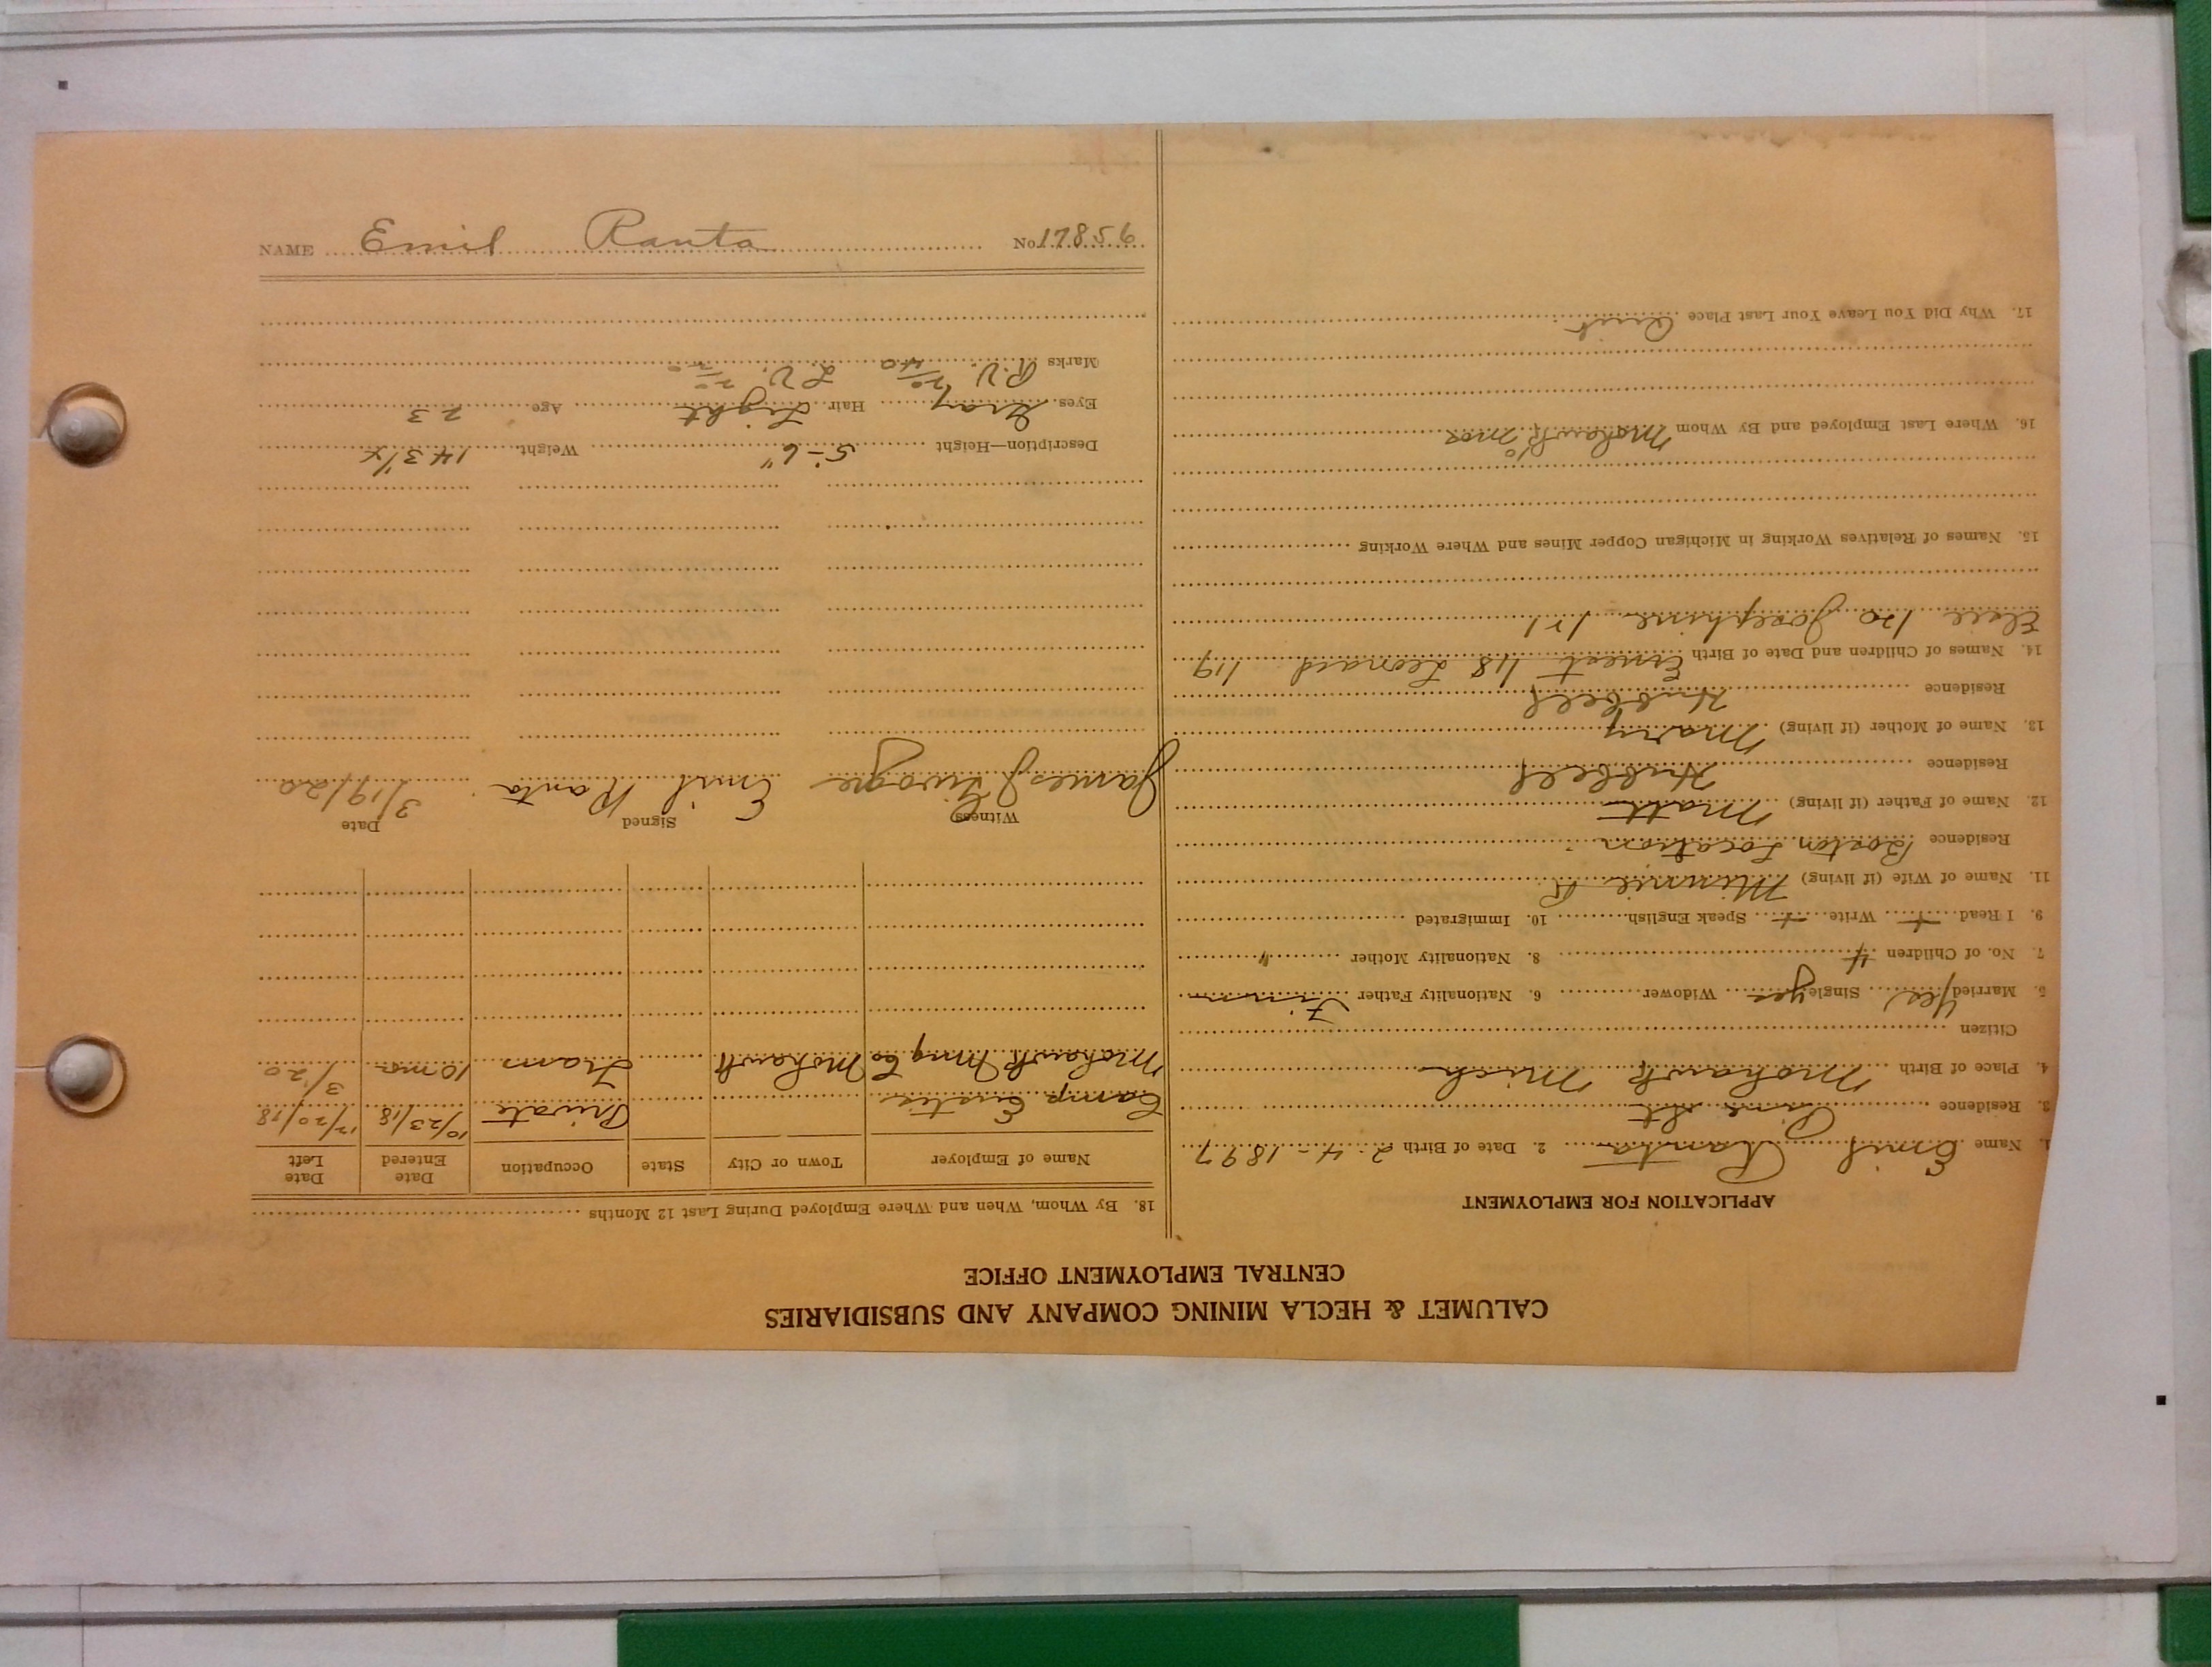 CALUMET & HECLA MINING COMPANY AND SUBSIDIARIES
CENTRAL EMPLOYMENT OFFICE
APPLICATION FOR EMPLOYMENT
1. Name Emil Ranta 2. Date of Birth 2-4-1897
3. Residence Pine St
4. Place of Birth Mohawk Mich
Citizen
5. Married Yes Single yes Widower 6. Nationality Father Finn
7. No. of Children 4 8. Nationality Mother "
9. I Read + Write + Speak English 10. Immigrated
11. Name of Wife (if living) Minnie R
Residence Boston Location
12. Name of Father (if living) Matt
Residence Hubbell
13. Name of Mother (if living) Mary
Residence Hubbell
14. Names of Children and Date of Birth Ernest 1/18 Leonard 1/19
1/20 Josephine 1/21
15. Names of Relatives Working in Michigan Copper Mines and Where Working
16. Where Last Employed and By Whom Mohawk 10 mos
17. Why Did You Leave Your Last Place Quit
18. By Whom, When and Where Employed During Last 12 Months
Name of Employer Town or City State Occupation Date Entered Date Left
Camp Custer Private 10/23/18 12/20/18
Mohawk Mng Co Mohawk Tram 10 mo. 3/20
Witness Signed Date
James J Emil Ranta 3/19/20
Description—Height 5'-6" Weight 143 1/2
Eyes Gray Hair Light Age 23
Marks R.V. 20/40 L.V. 20/
NAME Emil Ranta No 17856